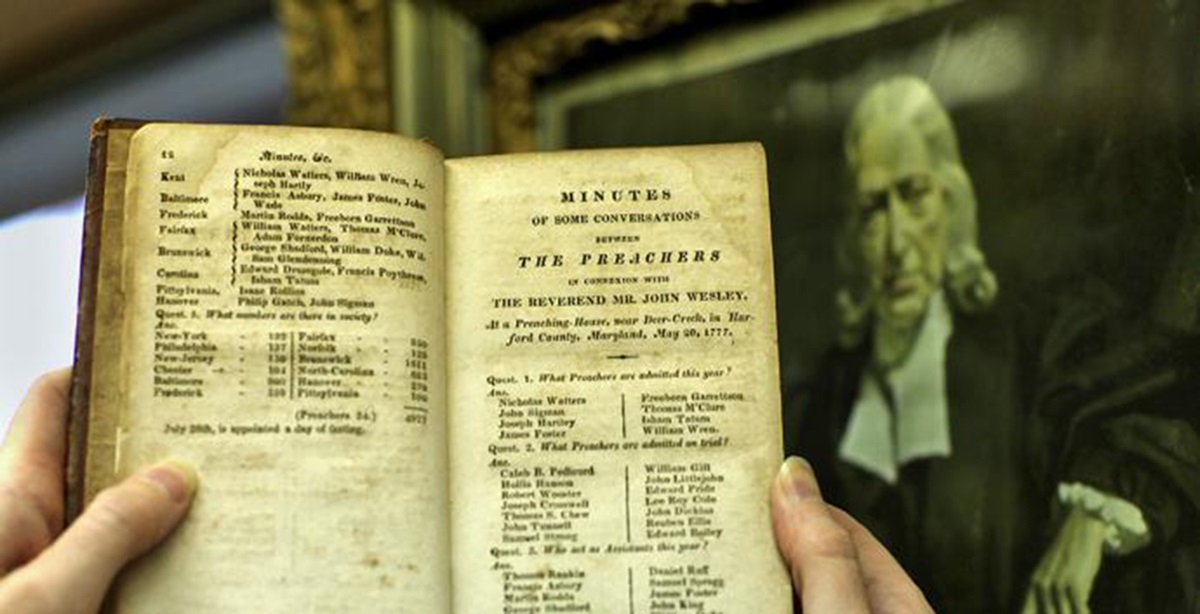 12 Minutes, &c.
Kent { Nicholas Watters, William Wren, Jo-
seph Hartly
Baltimore { Francis Asbury, James Foster, John
Wade
Frederick Martin Rodda, Freeborn Garrettson
Fairfax { William Watters, Thomas M'Clure,
Adam Fonerdon
Brunswick { George Shadford, William Duke, Wil-
liam Glendenning
Carolina { Edward Dromgole, Francis Poythress,
Isham Tatum
Pittsylvania, Isaac Rollins
Hanover Philip Gatch, John Sigman
Quest. 5. What numbers are there in society?
Ans.
New-York - 132 | Fairfax -
Philadelphia - 137 | Norfolk - 125
New-Jersey - 150 | Brunswick - 1611
Chester - 104 | North-Carolina - 683
Baltimore - 900 | Hanover - 270
Frederick - | Pittsylvania - 100
(Preachers 24.) 4921
July 28th, is appointed a day of fasting.
MINUTES
OF SOME CONVERSATIONS
BETWEEN
THE PREACHERS
IN CONNEXION WITH
THE REVEREND MR. JOHN WESLEY.
At a Preaching-House, near Deer-Creek, in Har-
ford County, Maryland, May 20, 1777.
Quest. 1. What Preachers are admitted this year?
Ans.
Nicholas Watters | Freeborn Garrettson
John Sigman | Thomas M'Clure
Joseph Hartley | Isham Tatum
James Foster | William Wren.
Quest. 2. What Preachers are admitted on trial?
Ans.
Caleb B. Pedicord | William Gill
Hollis Hanson | John Littlejohn
Robert Wooster | Edward Pride
Joseph Cromwell | Lee Roy Cole
Thomas S. Chew | John Dickins
John Tunnell | Reuben Ellis
Samuel Strong | Edward Bailey
Quest. 3. Who act as Assistants this year?
Ans.
Thomas Rankin | Daniel Ruff
Francis Asbury | Samuel Spragg
Martin Rodda | James Foster
George Shadford | John King